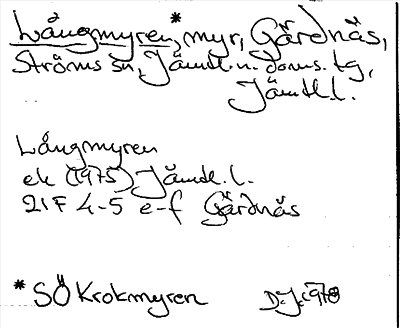 Långmyren*, myr, Gärdnäs,
Ströms sn, Jämtl. n. doms. tg,
Jämtl. l.
Långmyren
ek (1975) Jämtl. l.
21F 4-5 e-f Gärdnäs
* SÖ Krokmyren D.J. 1978